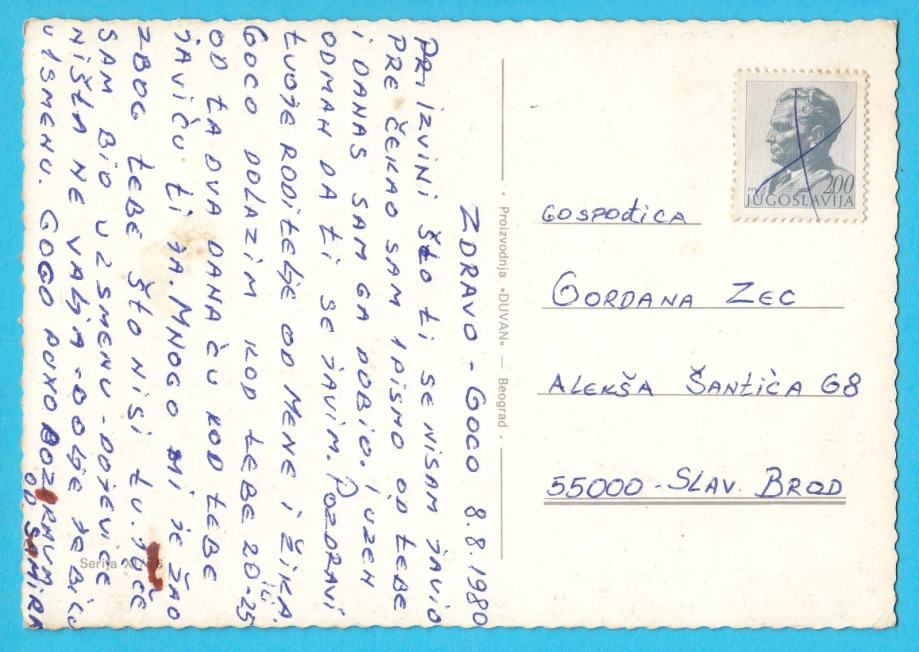 ZDRAVO - GOCO 8.8.1980
PRI IZVINI ŠTO TI SE NISAM JAVIO
PRE ČEKAO SAM 1 PISMO OD TEBE
I DANAS SAM GA DOBIO. I UZEH
ODMAH DA TI SE JAVIM. POZDRAVI
TVOJE RODITELJE OD MENE I ŽIKA
GOCO DOLAZIM KOD TEBE 20-25
ILI
OD TA DVA DANA ĆU KOD TEBE
JAVIĆU TI JA. MNOGO MI JE ŽAO
ZBOG TEBE ŠTO NISI TU.
SAM BIO U 2 SMENU -
NIŠTA NE VALJA - BOLJE JE BIĆU
U 1 SMENU. GOGO PUNO POZDRAVA
OD SAMIRA
Proizvodnja »DUVAN« — Beograd
2.00
JUGOSLAVIJA
GOSPOĐICA
GORDANA ZEC
ALEKŠA ŠANTIĆA 68
55000 - SLAV. BROD